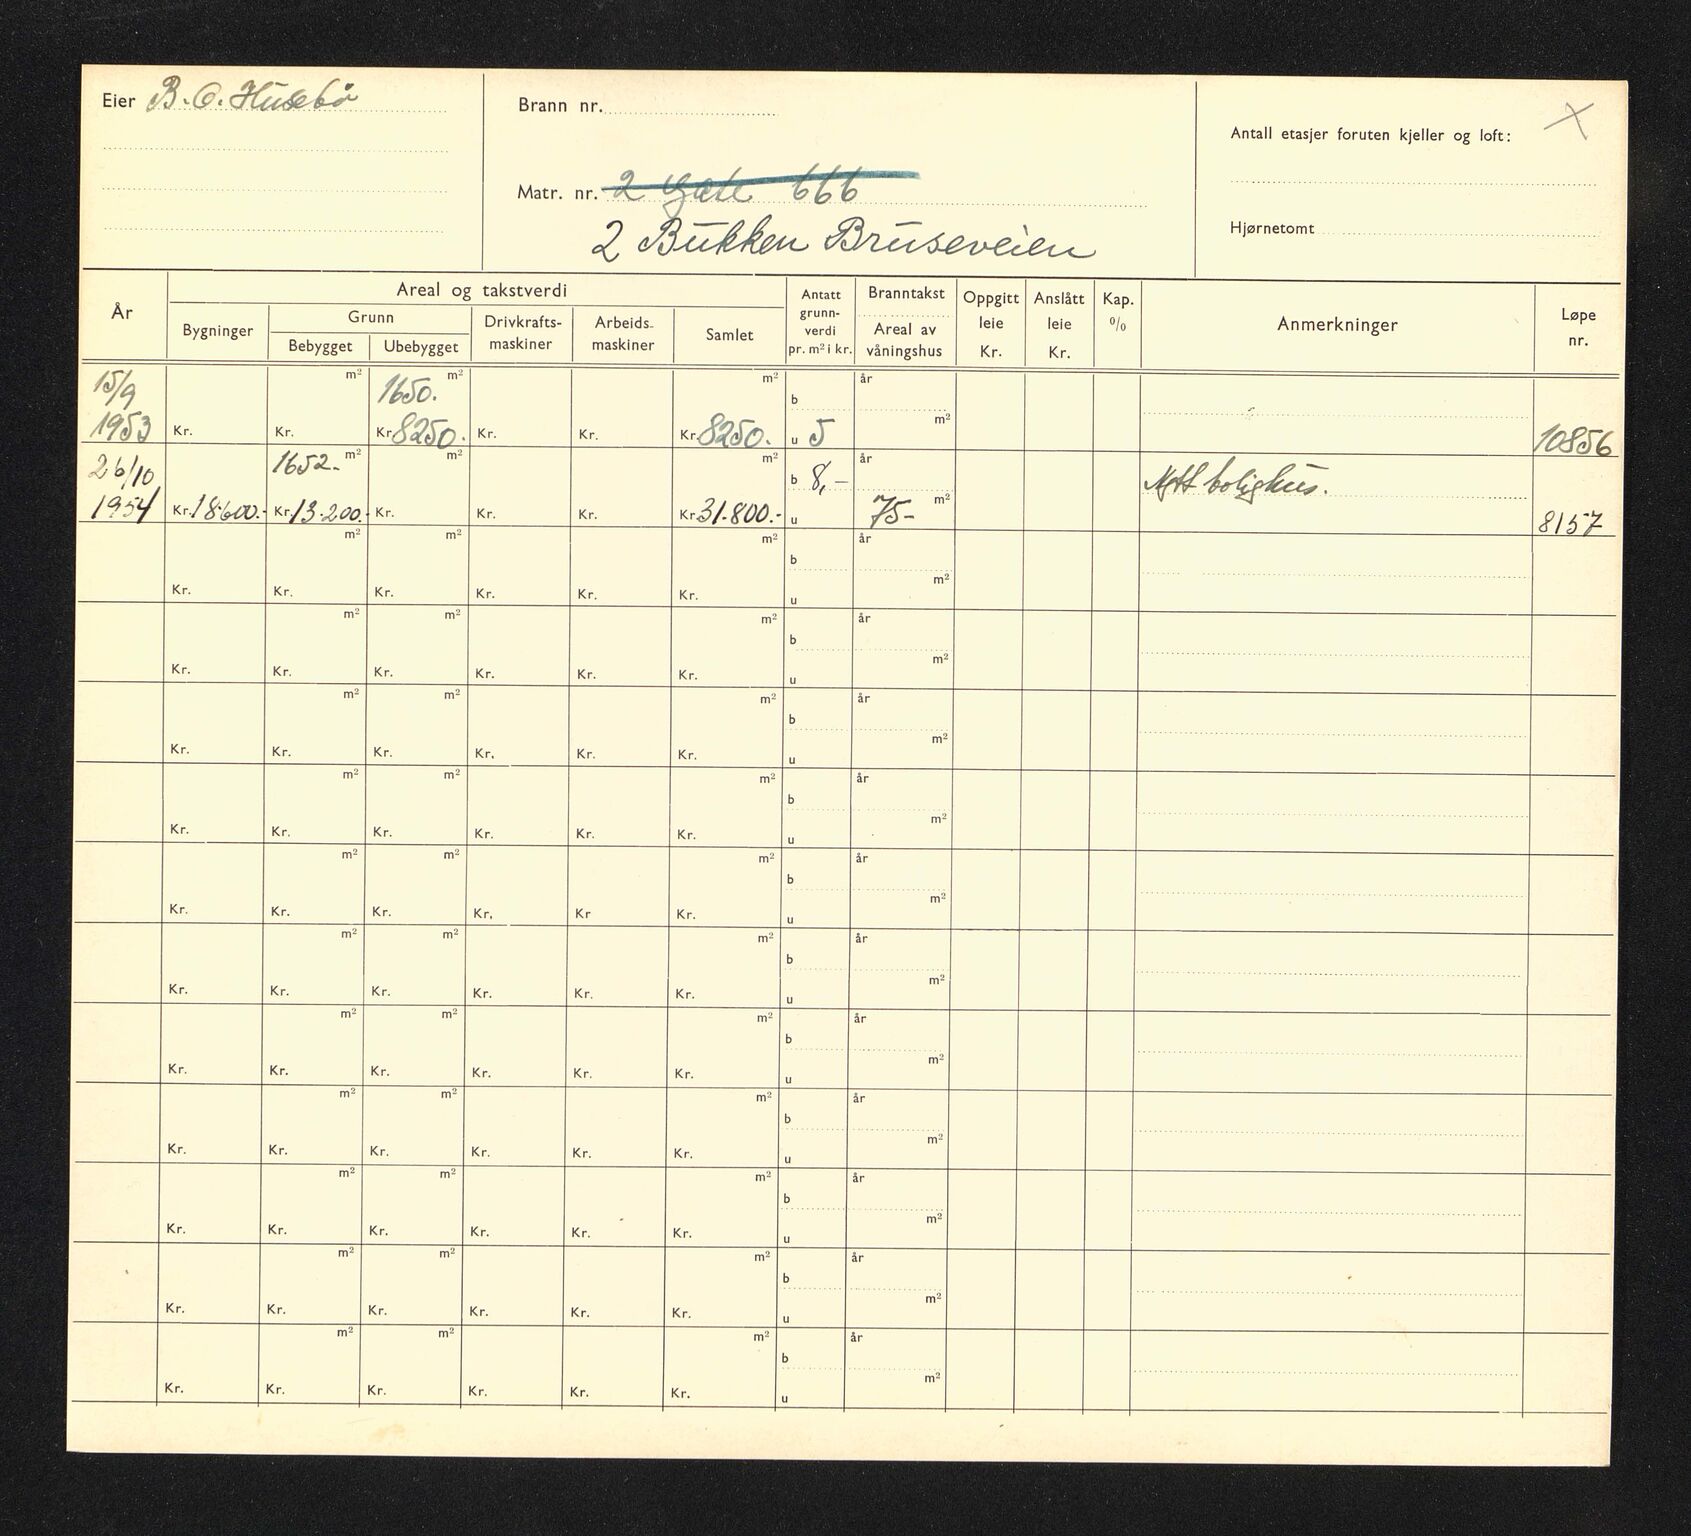 Eier B. O. Husebö
Brann nr.
Matr. nr. 2 Gate 666
2 Bukken Bruseveien
Antall etasjer foruten kjeller og loft:
Hjørnetomt
År
Areal og takstverdi
Bygninger
Grunn
Bebygget
Ubebygget
Drivkrafts-
maskiner
Arbeids-
maskiner
Samlet
Antatt
grunn-
verdi
pr. m² i kr.
Branntakst
Areal av
våningshus
Oppgitt
leie
Kr.
Anslått
leie
Kr.
Kap.
%
Anmerkninger
Løpe
nr.
15/9 m² 1650. m² m² b år
1953 Kr. Kr. Kr. 8250. Kr. Kr. Kr. 8250. u 5 m² 10856
26/10 1652.- m² m² m² b 8,- år Nytt bolighus.
1954 Kr. 18.600.- Kr. 13.200.- Kr. Kr. Kr. Kr. 31.800.- u 75- m² 8157
m² m² m² b år
Kr. Kr. Kr. Kr. Kr. Kr. u m²
m² m² m² b år
Kr. Kr. Kr. Kr. Kr. Kr. u m²
m² m² m² b år
Kr. Kr. Kr. Kr. Kr. Kr. u m²
m² m² m² b år
Kr. Kr. Kr. Kr. Kr. Kr. u m²
m² m² m² b år
Kr. Kr. Kr. Kr. Kr Kr. u m²
m² m² m² b år
Kr. Kr. Kr. Kr. Kr. Kr. u m²
m² m² m² b år
Kr. Kr. Kr. Kr. Kr. Kr. u m²
m² m² m² b år
Kr. Kr. Kr. Kr. Kr. Kr. u m²
m² m² m² b år
Kr. Kr. Kr. Kr. Kr. Kr. u m²
m² m² m² b år
Kr. Kr. Kr. Kr. Kr. Kr. u m²
m² m² m² b år
Kr. Kr. Kr. Kr. Kr. Kr. u m²